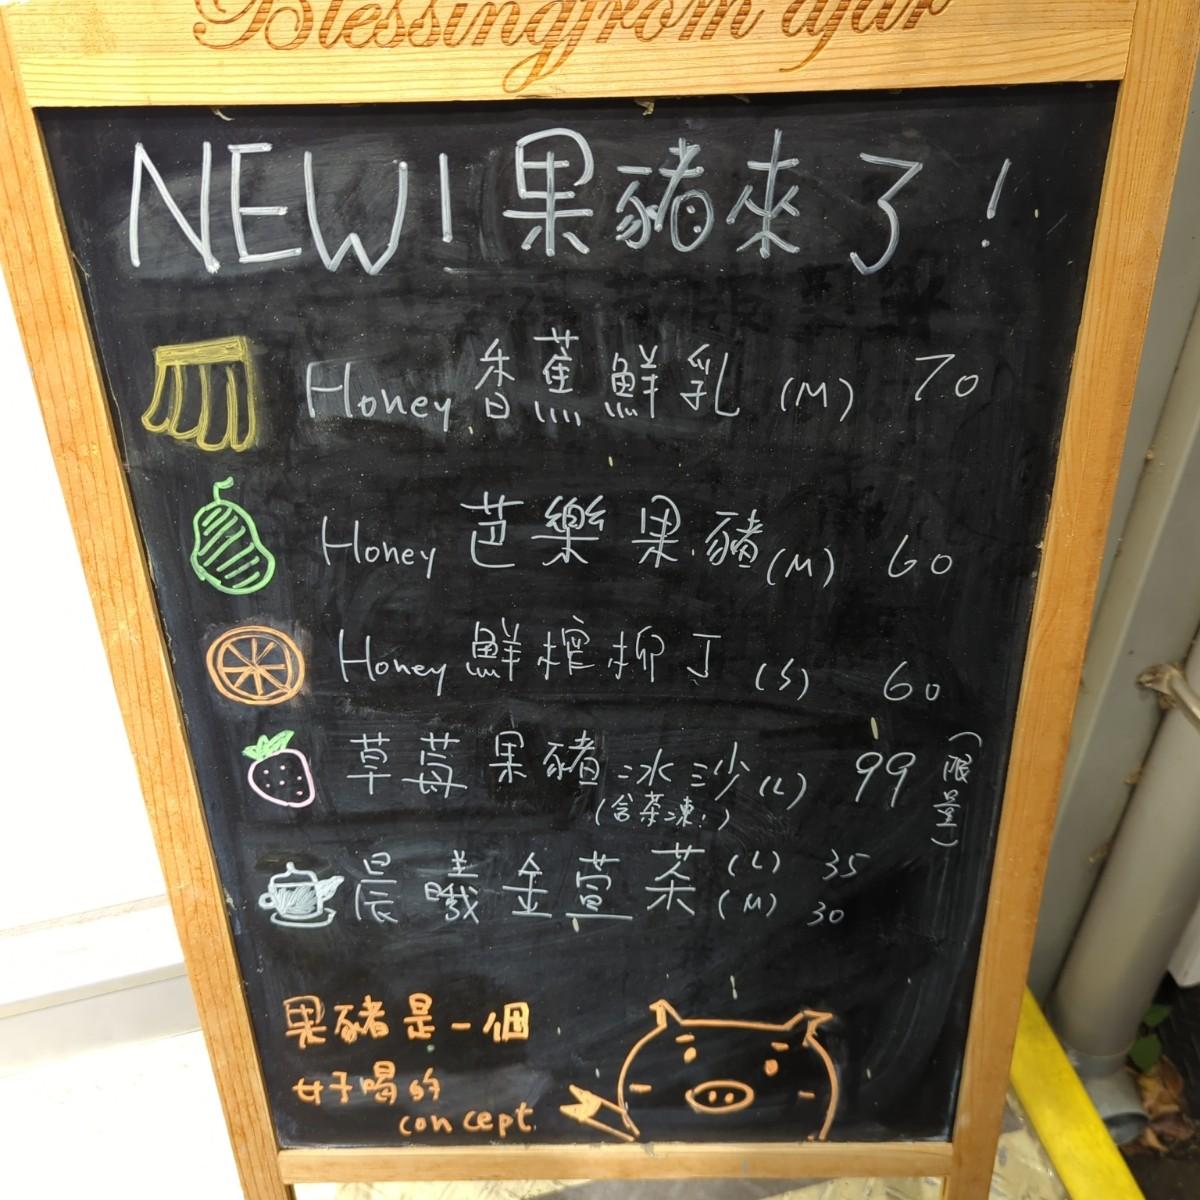 Blessingfrom afar
NEW! 果豬來了!
Honey 香蕉鮮乳 (M) 70
Honey 芭樂果豬 (M) 60
Honey 鮮榨柳丁 (S) 60
草莓果豬冰沙 (L) 99 (限量)
(含茶凍!)
晨曦金萱茶 (L) 35
(M) 30
果豬是一個
好喝的
concept.